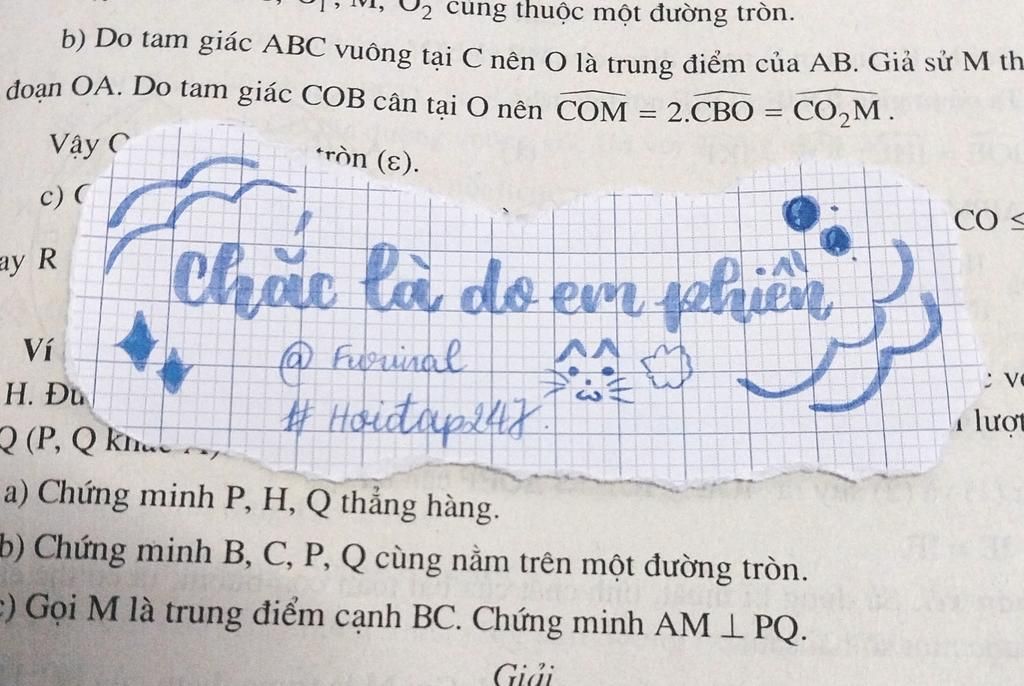 M, O₂ cùng thuộc một đường tròn.
b) Do tam giác ABC vuông tại C nên O là trung điểm của AB. Giả sử M
đoạn OA. Do tam giác COB cân tại O nên COM = 2.CBO = CO₂M.
Vậy tròn (ε).
c) CO ≤
R
Ví
Chắc là do em phiền
@ Furinal
# Hoidap247.
H.
lượt
Q (P, Q
a) Chứng minh P, H, Q thẳng hàng.
b) Chứng minh B, C, P, Q cùng nằm trên một đường tròn.
c) Gọi M là trung điểm cạnh BC. Chứng minh AM ⊥ PQ.
Giải